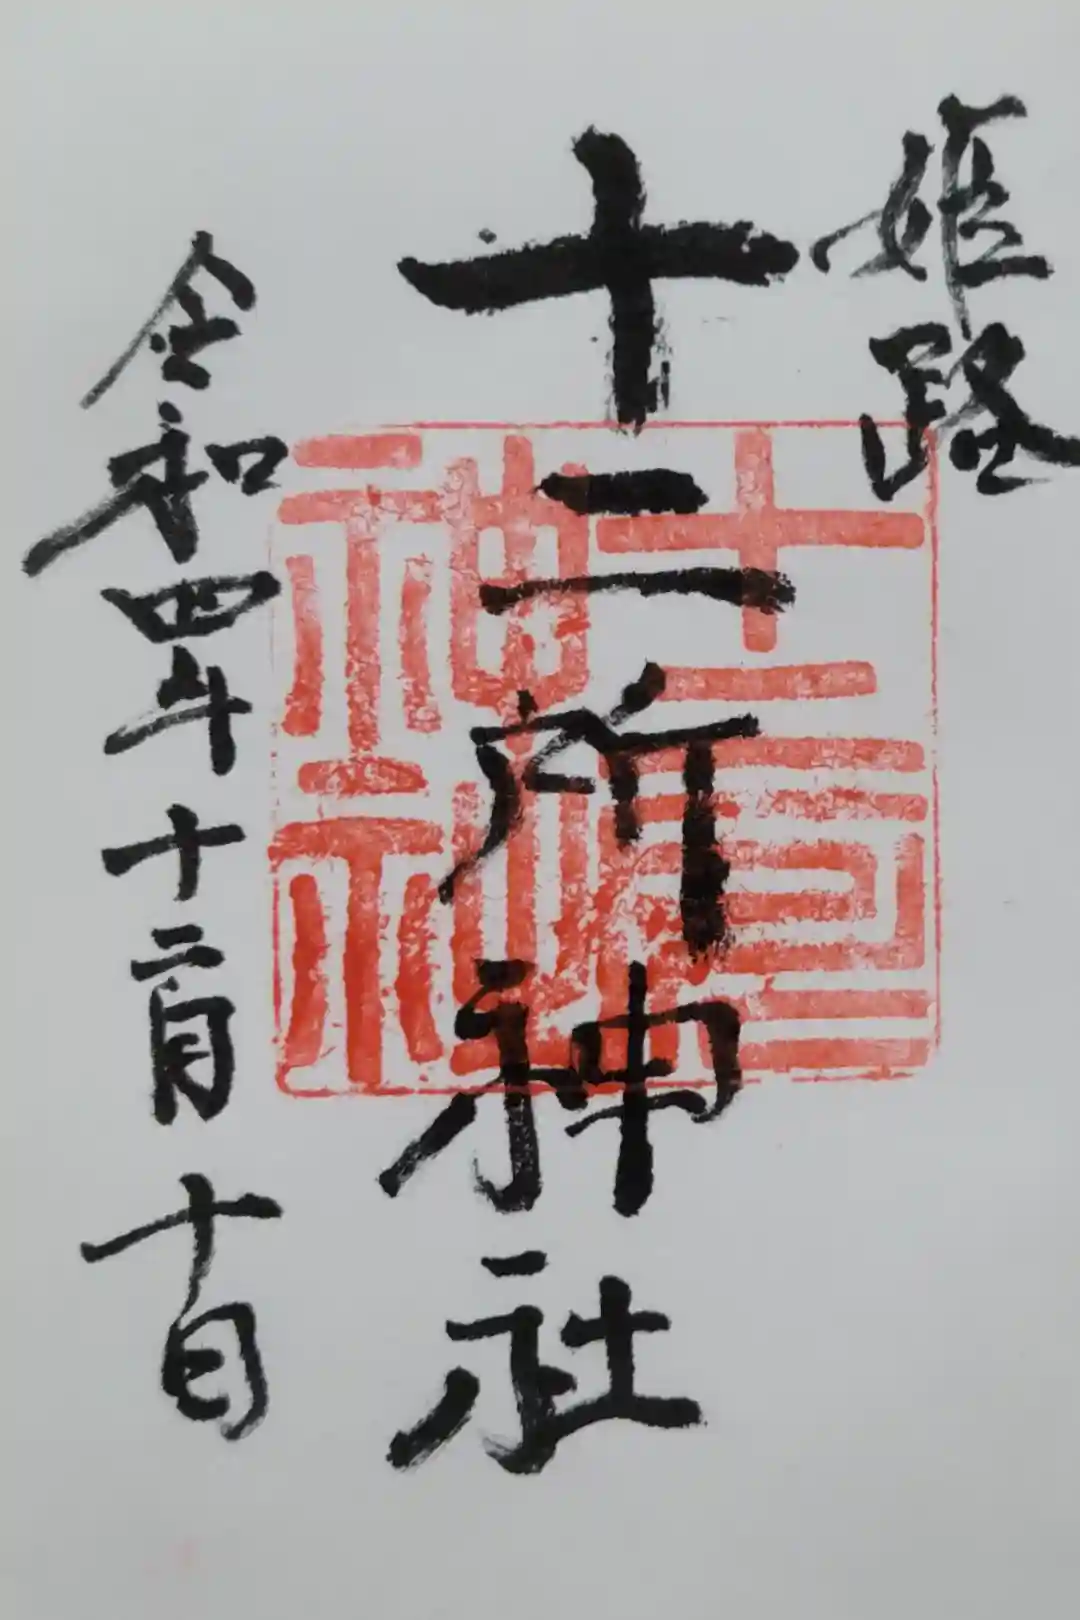 姫路
十二所神社
令和四年十二月十日
十二所
神社